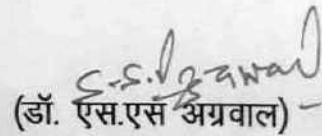 S.S. Agrawal
(डॉ. एस.एस अग्रवाल)